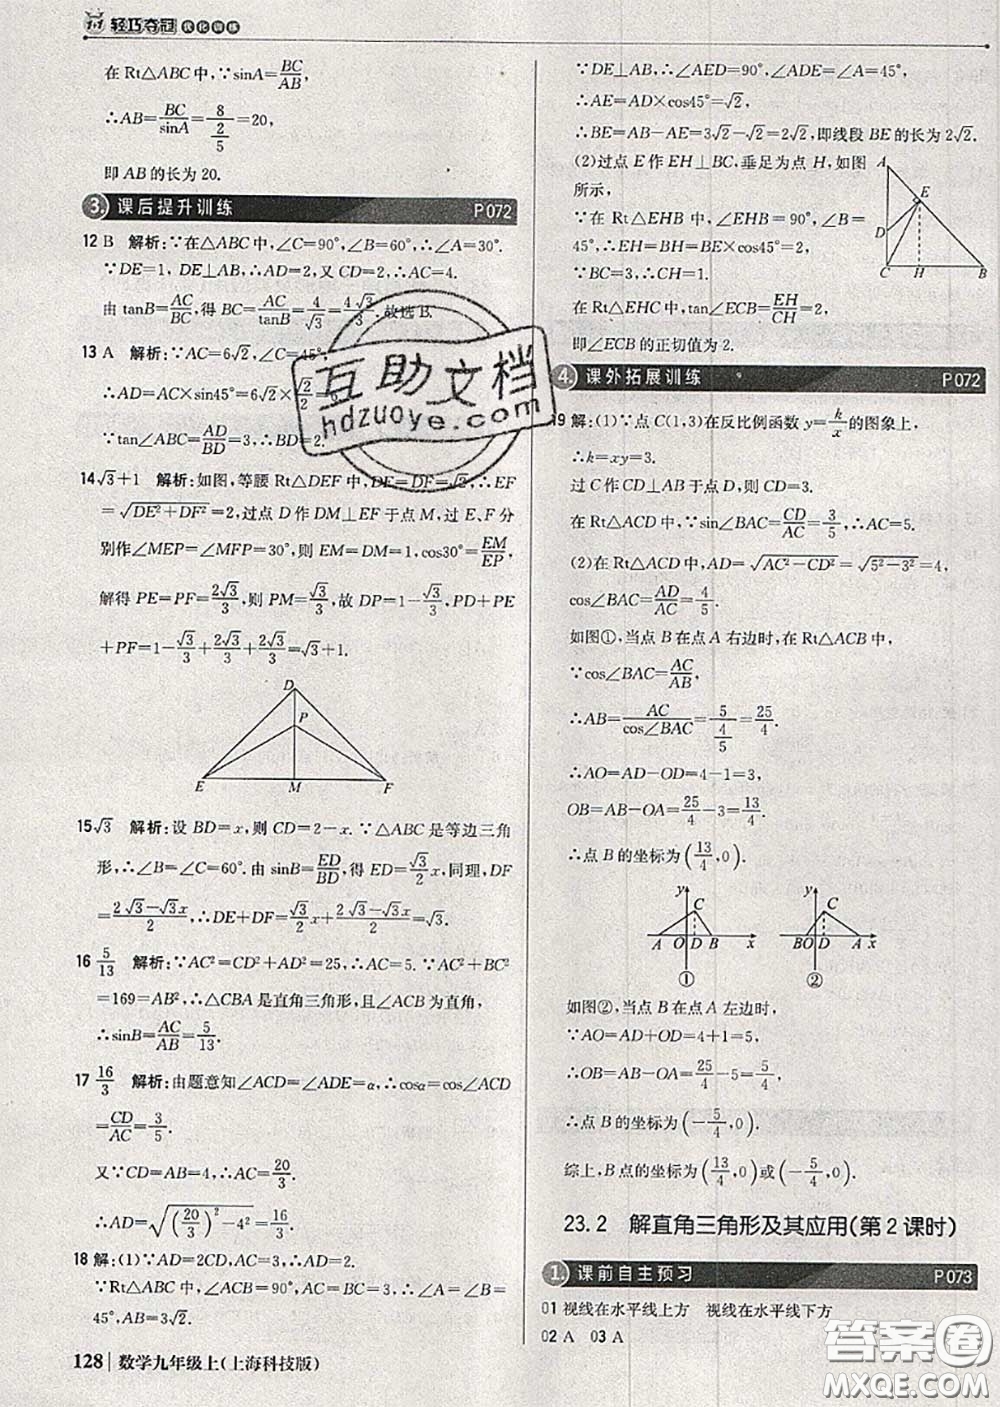 轻巧夺冠 优化训练
在Rt△ABC中,∵sinA=BC/AB,
∴AB=BC/sinA=8/(2/5)=20,
即AB的长为20.
3. 课后提升训练 P072
12 B 解析:∵在△ABC中,∠C=90°,∠B=60°,∴∠A=30°.
∵DE=1,DE⊥AB,∴AD=2,又CD=2,∴AC=4.
由tanB=AC/BC,得BC=AC/tanB=4/√3=4√3/3.故选B.
13 A 解析:∵AC=6√2,∠C=45°,
∴AD=AC×sin45°=6√2×
∵tan∠ABC=AD/BD=3,∴BD=2.
14 √3+1 解析:如图,等腰Rt△DEF中,DE=DF=√2,∴EF
=√(DE²+DF²)=2,过点D作DM⊥EF于点M,过E、F分
别作∠MEP=∠MFP=30°,则EM=DM=1,cos30°=EM/EP,
解得PE=PF=2√3/3,则PM=√3/3,故DP=1-√3/3,PD+PE
+PF=1-√3/3+2√3/3+2√3/3=√3+1.
D
P
E M F
15 √3 解析:设BD=x,则CD=2-x.∵△ABC是等边三角
形,∴∠B=∠C=60°.由sinB=ED/BD,得ED=√3/2x,同理,DF
=(2√3-√3x)/2,∴DE+DF=√3/2x+(2√3-√3x)/2=√3.
16 5/13 解析:∵AC²=CD²+AD²=25,∴AC=5.∵AC²+BC²
=169=AB²,∴△CBA是直角三角形,且∠ACB为直角,
∴sinB=AC/AB=5/13.
17 16/3 解析:由题意知∠ACD=∠ADE=α,∴cosα=cos∠ACD
=CD/AC=3/5.
又∵CD=AB=4,∴AC=20/3.
∴AD=√((20/3)²-4²)=16/3.
18 解:(1)∵AD=2CD,AC=3,∴AD=2.
∵Rt△ABC中,∠ACB=90°,AC=BC=3,
∴AB=3√2.
128 数学九年级上(上海科技版)
∵DE⊥AB,∴∠AED=90°,∠ADE=∠A=45°,
∴AE=AD×cos45°=√2,
∴BE=AB-AE=3√2-√2=2√2,即线段BE的长为2√2.
(2)过点E作EH⊥BC,垂足为点H,如图
所示,
∵在Rt△EHB中,∠EHB=90°,∠B=
45°,∴EH=BH=BE×cos45°=2.
∵BC=3,∴CH=1.
在Rt△EHC中,tan∠ECB=EH/CH=2,
即∠ECB的正切值为2.
A
E
D
C H B
4. 课外拓展训练 P072
19 解:(1)∵点C(1,3)在反比例函数y=k/x的图象上,
∴k=xy=3.
过C作CD⊥AB于点D,则CD=3.
在Rt△ACD中,∵sin∠BAC=CD/AC=3/5,∴AC=5.
(2)在Rt△ACD中,AD=√(AC²-CD²)=√(5²-3²)=4,
cos∠BAC=AD/AC=4/5.
如图①,当点B在点A右边时,在Rt△ACB中,
∵cos∠BAC=AC/AB,
∴AB=AC/cos∠BAC=5/(4/5)=25/4.
∴AO=AD-OD=4-1=3,
OB=AB-OA=25/4-3=13/4.
∴点B的坐标为(13/4,0).
y C A O D B x ①
y C B O D A x ②
如图②,当点B在点A左边时,
∵AO=AD+OD=4+1=5,
∴OB=AB-OA=25/4-5=5/4,
∴点B的坐标为(-5/4,0).
综上,B点的坐标为(13/4,0)或(-5/4,0).
23.2 解直角三角形及其应用(第2课时)
1. 课前自主预习 P073
01 视线在水平线上方 视线在水平线下方
02 A 03 A
互助文档
hdzuoye.com
答案圈
MXQE.COM